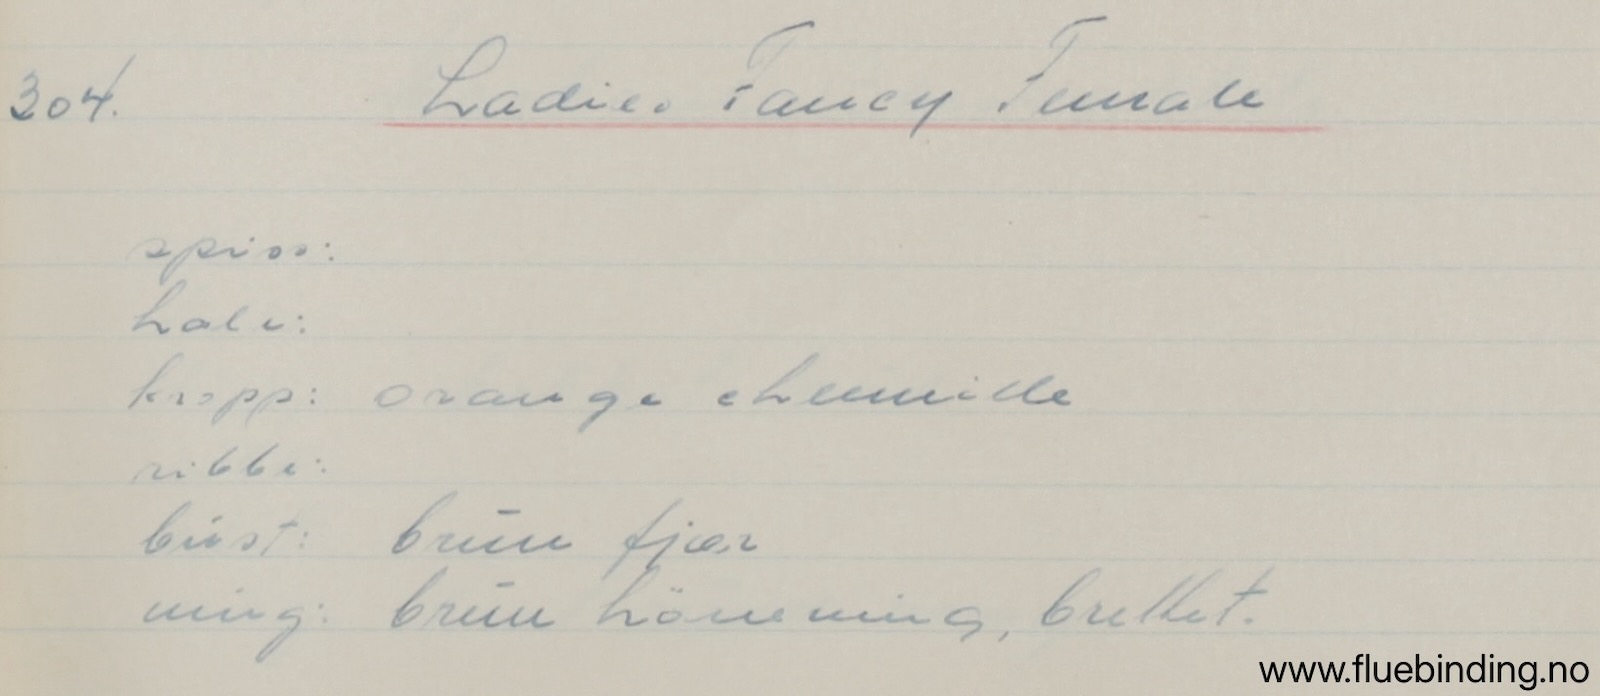 304. Ladies Fancy Female
spiss:
hale:
kropp: orange chenille
ribbe:
bust: brun fjær
ving: brun hönseving, brettet.
www.fluebinding.no